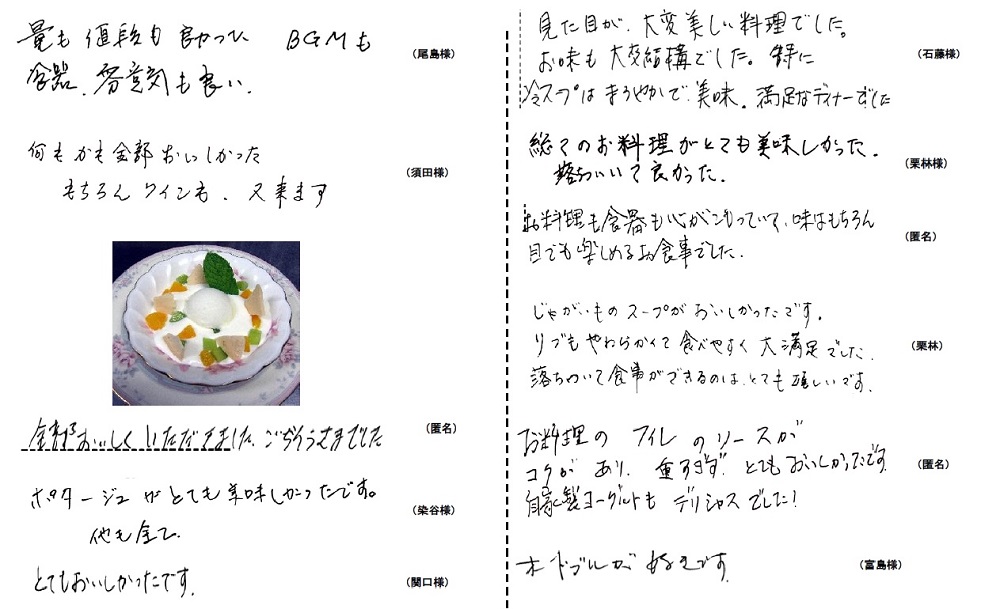 量も値段も良かった BGMも
食器、雰意気も良い。
(尾島様)
何もかも全部おいしかった
もちろんワインも、又来ます
(須田様)
全部おいしくいただきました、ごちそうさまでした
(匿名)
ポタージュがとても美味しかったです。
他も全て、
(染谷様)
とてもおいしかったです。
(関口様)
見た目が、大変美しい料理でした。
お味も大変結構でした。特に
冷スープはまろやかで、美味。満足なディナーでした
(石藤様)
総てのお料理がとても美味しかった。
落ちついて良かった。
(栗林様)
お料理も食器も心がこもっていて、味はもちろん
目でも楽しめるお食事でした。
(匿名)
じゃがいものスープがおいしかったです。
リブもやわらかくて食べやすく大満足でした。
落ちついて食事ができるのは、とても嬉しいです。
(栗林)
お料理のフィレのソースが
コクがあり、重すぎず、とてもおいしかったです。
自家製ヨーグルトもデリシャスでした!
オードブルが好きです。
(匿名)
(富島様)